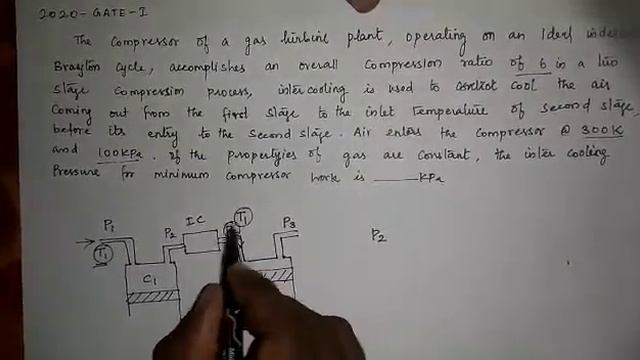 2020-GATE-I
The compressor of a gas turbine plant, operating on an Ideal
Brayton cycle, accomplishes an overall compression ratio of 6 in a two
stage compression process, intercooling is used to cool the air
Coming out from the first stage to the inlet Temperature of Second stage,
before its entry to the Second stage. Air enters the compressor @ 300K
and 100KPa. If the propertyies of gas are constant, the inter cooling
Pressure for minimum compressor work is ______ KPa
P1 P2 IC T1 P3 P2
T1
C1